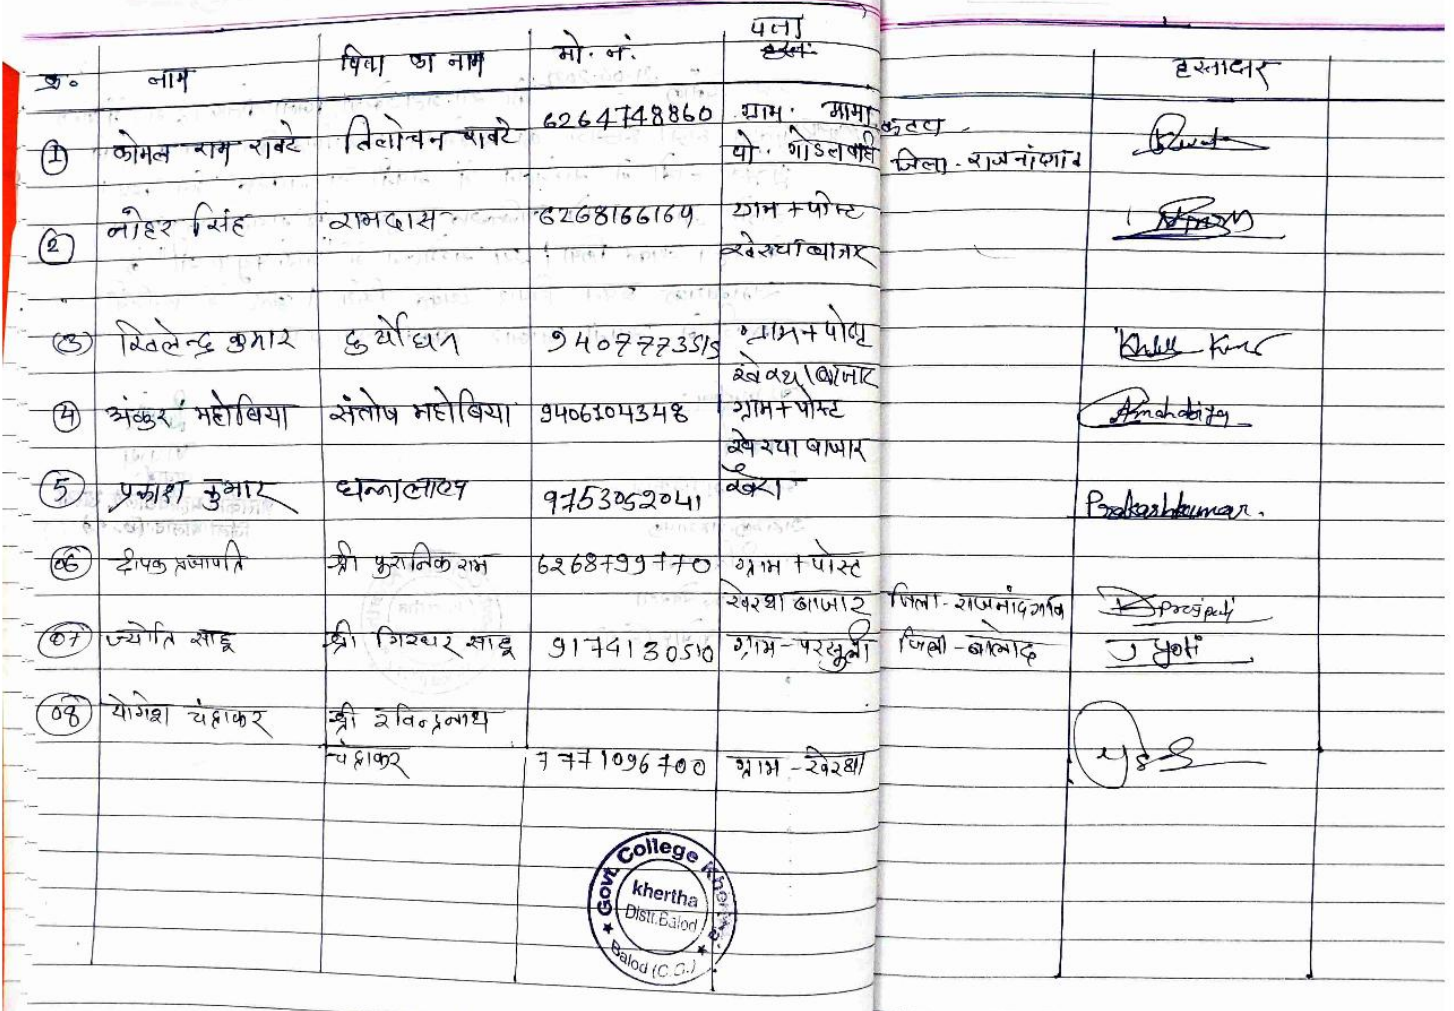 क्र. नाम पिता का नाम मो. नं. पता हस्ताक्षर
① कोमल राम रावटे तिलोचन रावटे 6264748860 ग्राम.
पो. जिला - राजनांदगांव
② नोहर सिंह रामदास 6268166169 ग्राम + पोस्ट
खेरथा बाजार
③ खिलेन्द्र कुमार दुर्योधन 9407773515 ग्राम + पोस्ट Kumar
खेरथा बाजार
④ अंकुर महोबिया संतोष महोबिया 9406104348 ग्राम + पोस्ट Amahobiya
खेरथा बाजार
⑤ प्रकाश कुमार धन्नालाल 9753052041 खैरा Prakashkumar.
06 दीपक प्रजापति श्री पुरानिक राम 6268799770 ग्राम + पोस्ट
खेरथा बाजार जिला - राजनांदगांव Dprajpati
07 ज्योति साहू श्री गिरधर साहू 9174130510 ग्राम - परसुली जिला - बालोद Jyoti
08 योगेश चंद्राकर श्री रविन्द्रनाथ
चंद्राकर 7771096700 ग्राम - खेरथा
Govt. College Khertha
khertha
Distt. Balod
Balod (C.G.)